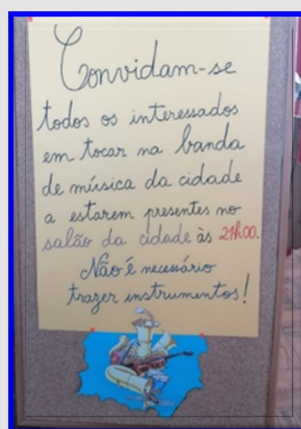 Convidam-se
todos os interessados
em tocar na banda
de música da cidade
a estarem presentes no
salão da cidade às 21h00.
Não é necessário
trazer instrumentos!